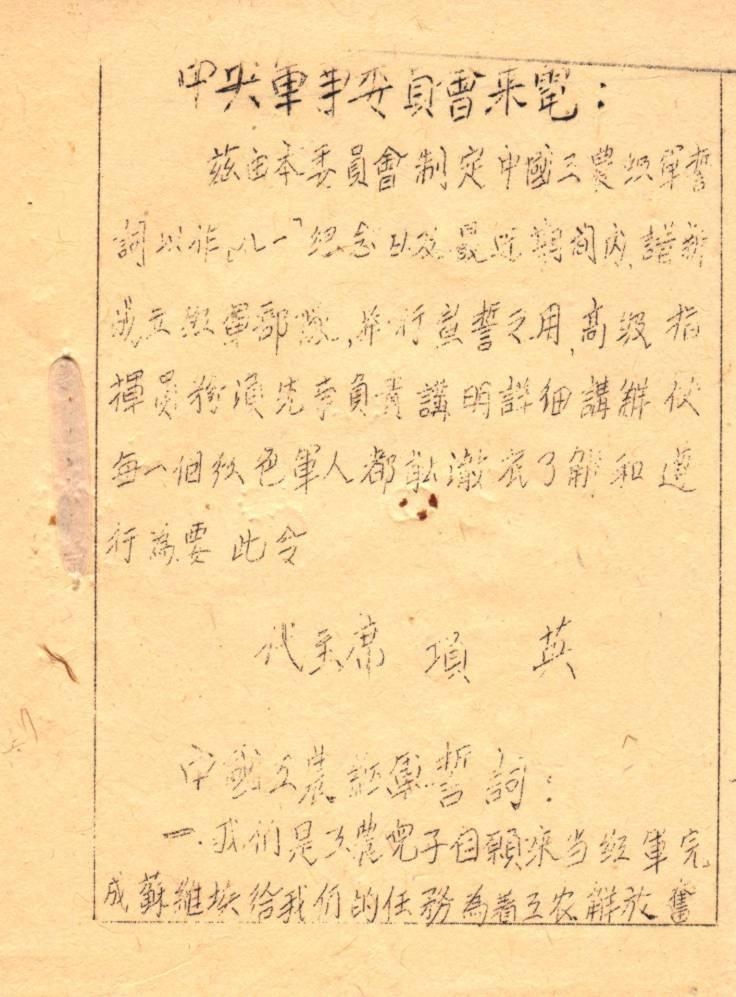 中央軍事委員會来電：
茲由本委員會制定中國工農红軍誓
詞以作「八一」纪念以及最近期间内,譜新
成立红軍部隊,举行宣誓之用,高级指
揮員務須先事負責講明詳细講解使
每一個红色軍人都能澈底了解和遵
行為要此令
代主席 項 英
中國工農红軍誓詞：
一.我们是工農兒子自願来当红軍完
成蘇維埃给我们的任務為着工农解放奮